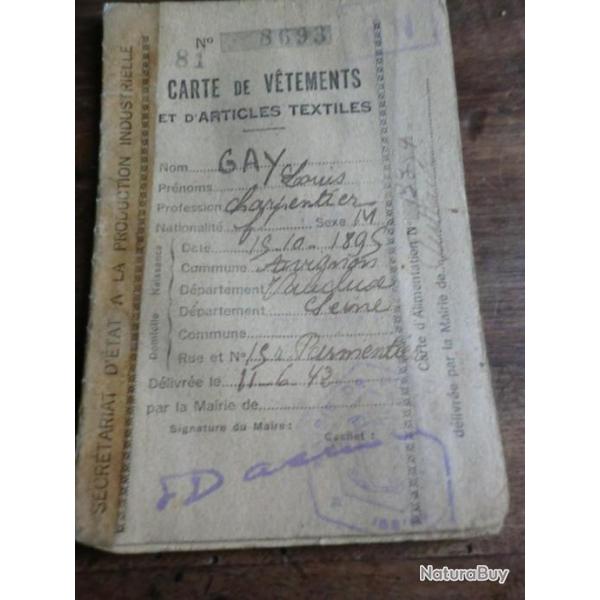 N° 8693
81
CARTE DE VÊTEMENTS
ET D'ARTICLES TEXTILES
Nom GAY
Prénoms Louis
Profession Charpentier
Nationalité f Sexe M
Naissance
Date 15-10-1895
Commune Avignon
Département Vaucluse
Domicile
Département Seine
Commune
Rue et N° Parmentier
Délivrée le 11-6-43
par la Mairie de
Signature du Maire : Cachet :
SECRÉTARIAT D'ÉTAT A LA PRODUCTION INDUSTRIELLE
Carte d'Alimentation N°
délivrée par la Mairie de
NaturaBuy